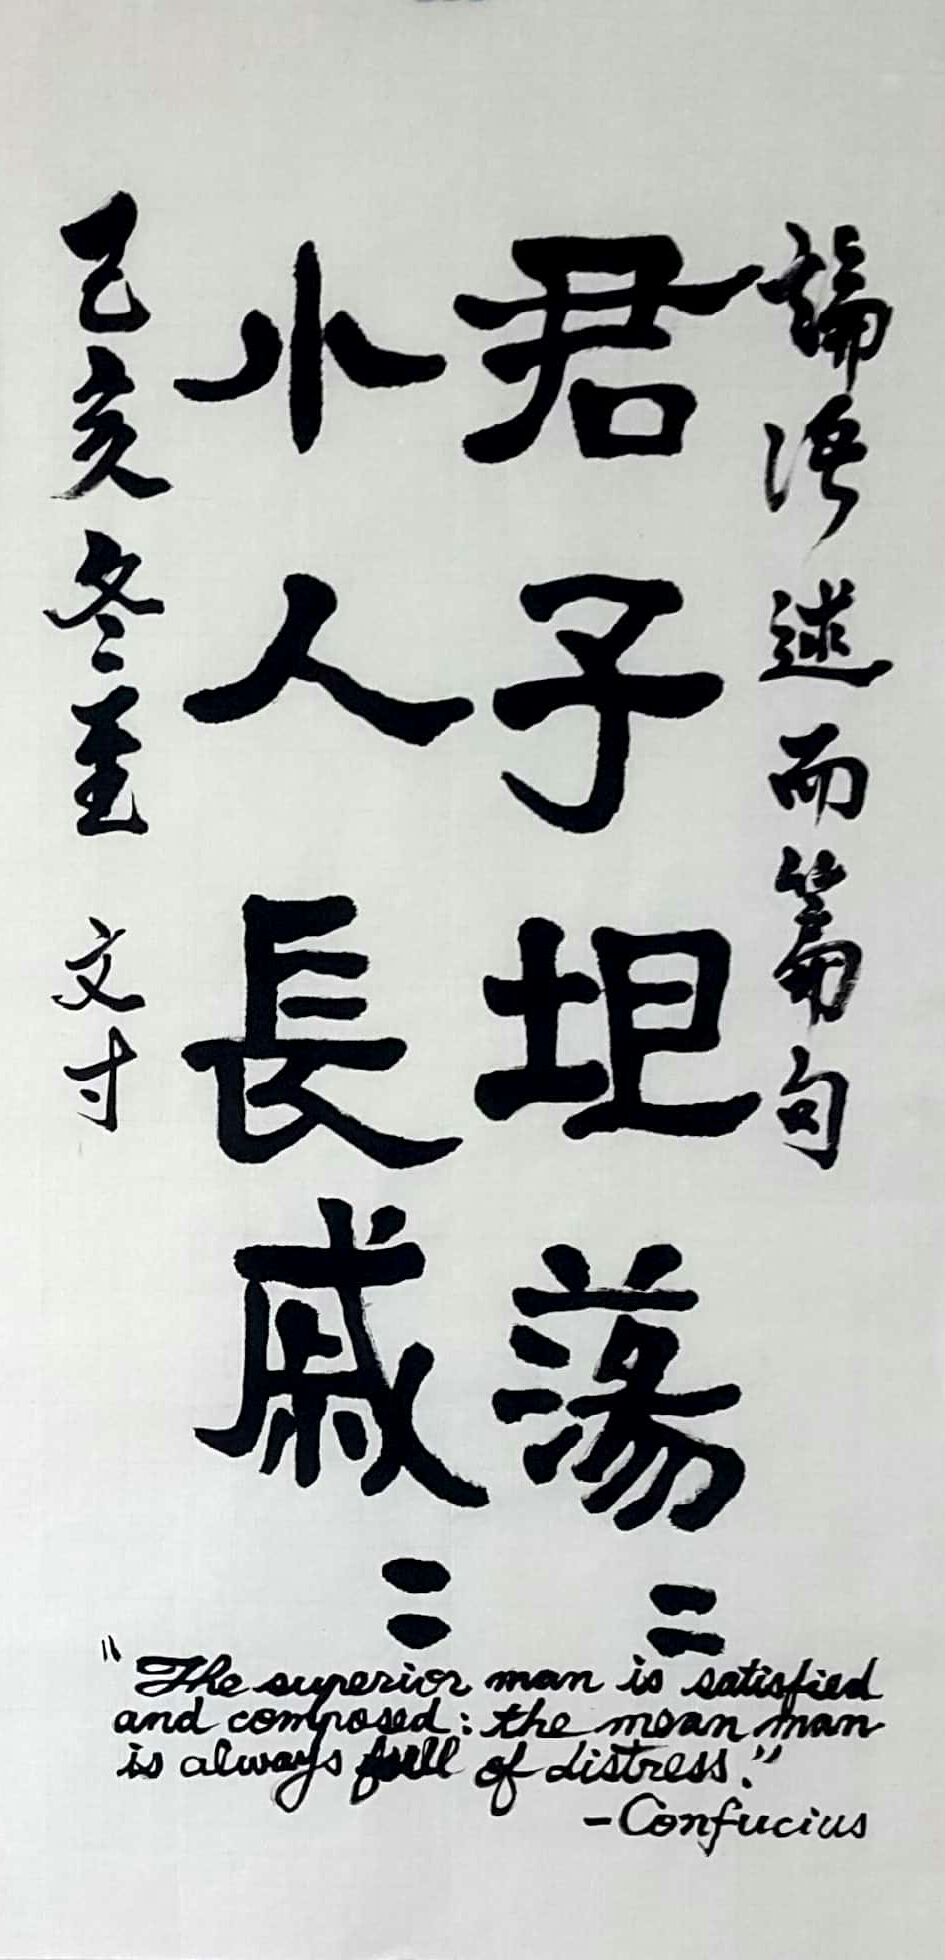 論語述而篇句
君子坦蕩二
小人長戚二
己亥冬至 文寸
"The superior man is satisfied
and composed: the mean man
is always full of distress."
-Confucius